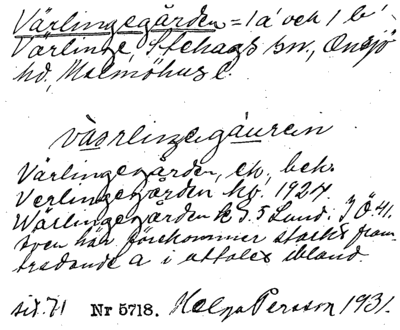 Värlingegården = 1 a´ och 1 b´
Värlinge, Stehags sn, Onsjö
hd, Malmöhus l.
Värlingegården, ek, beb.
Verlingegården hg. 1927
Wärlingegården k 3.5 Lund. I Ö 41.
Även här förekommer starkt fram-
trädande a i uttalet ibland.
sit. 71 Nr 5718. Helga Persson 1931.